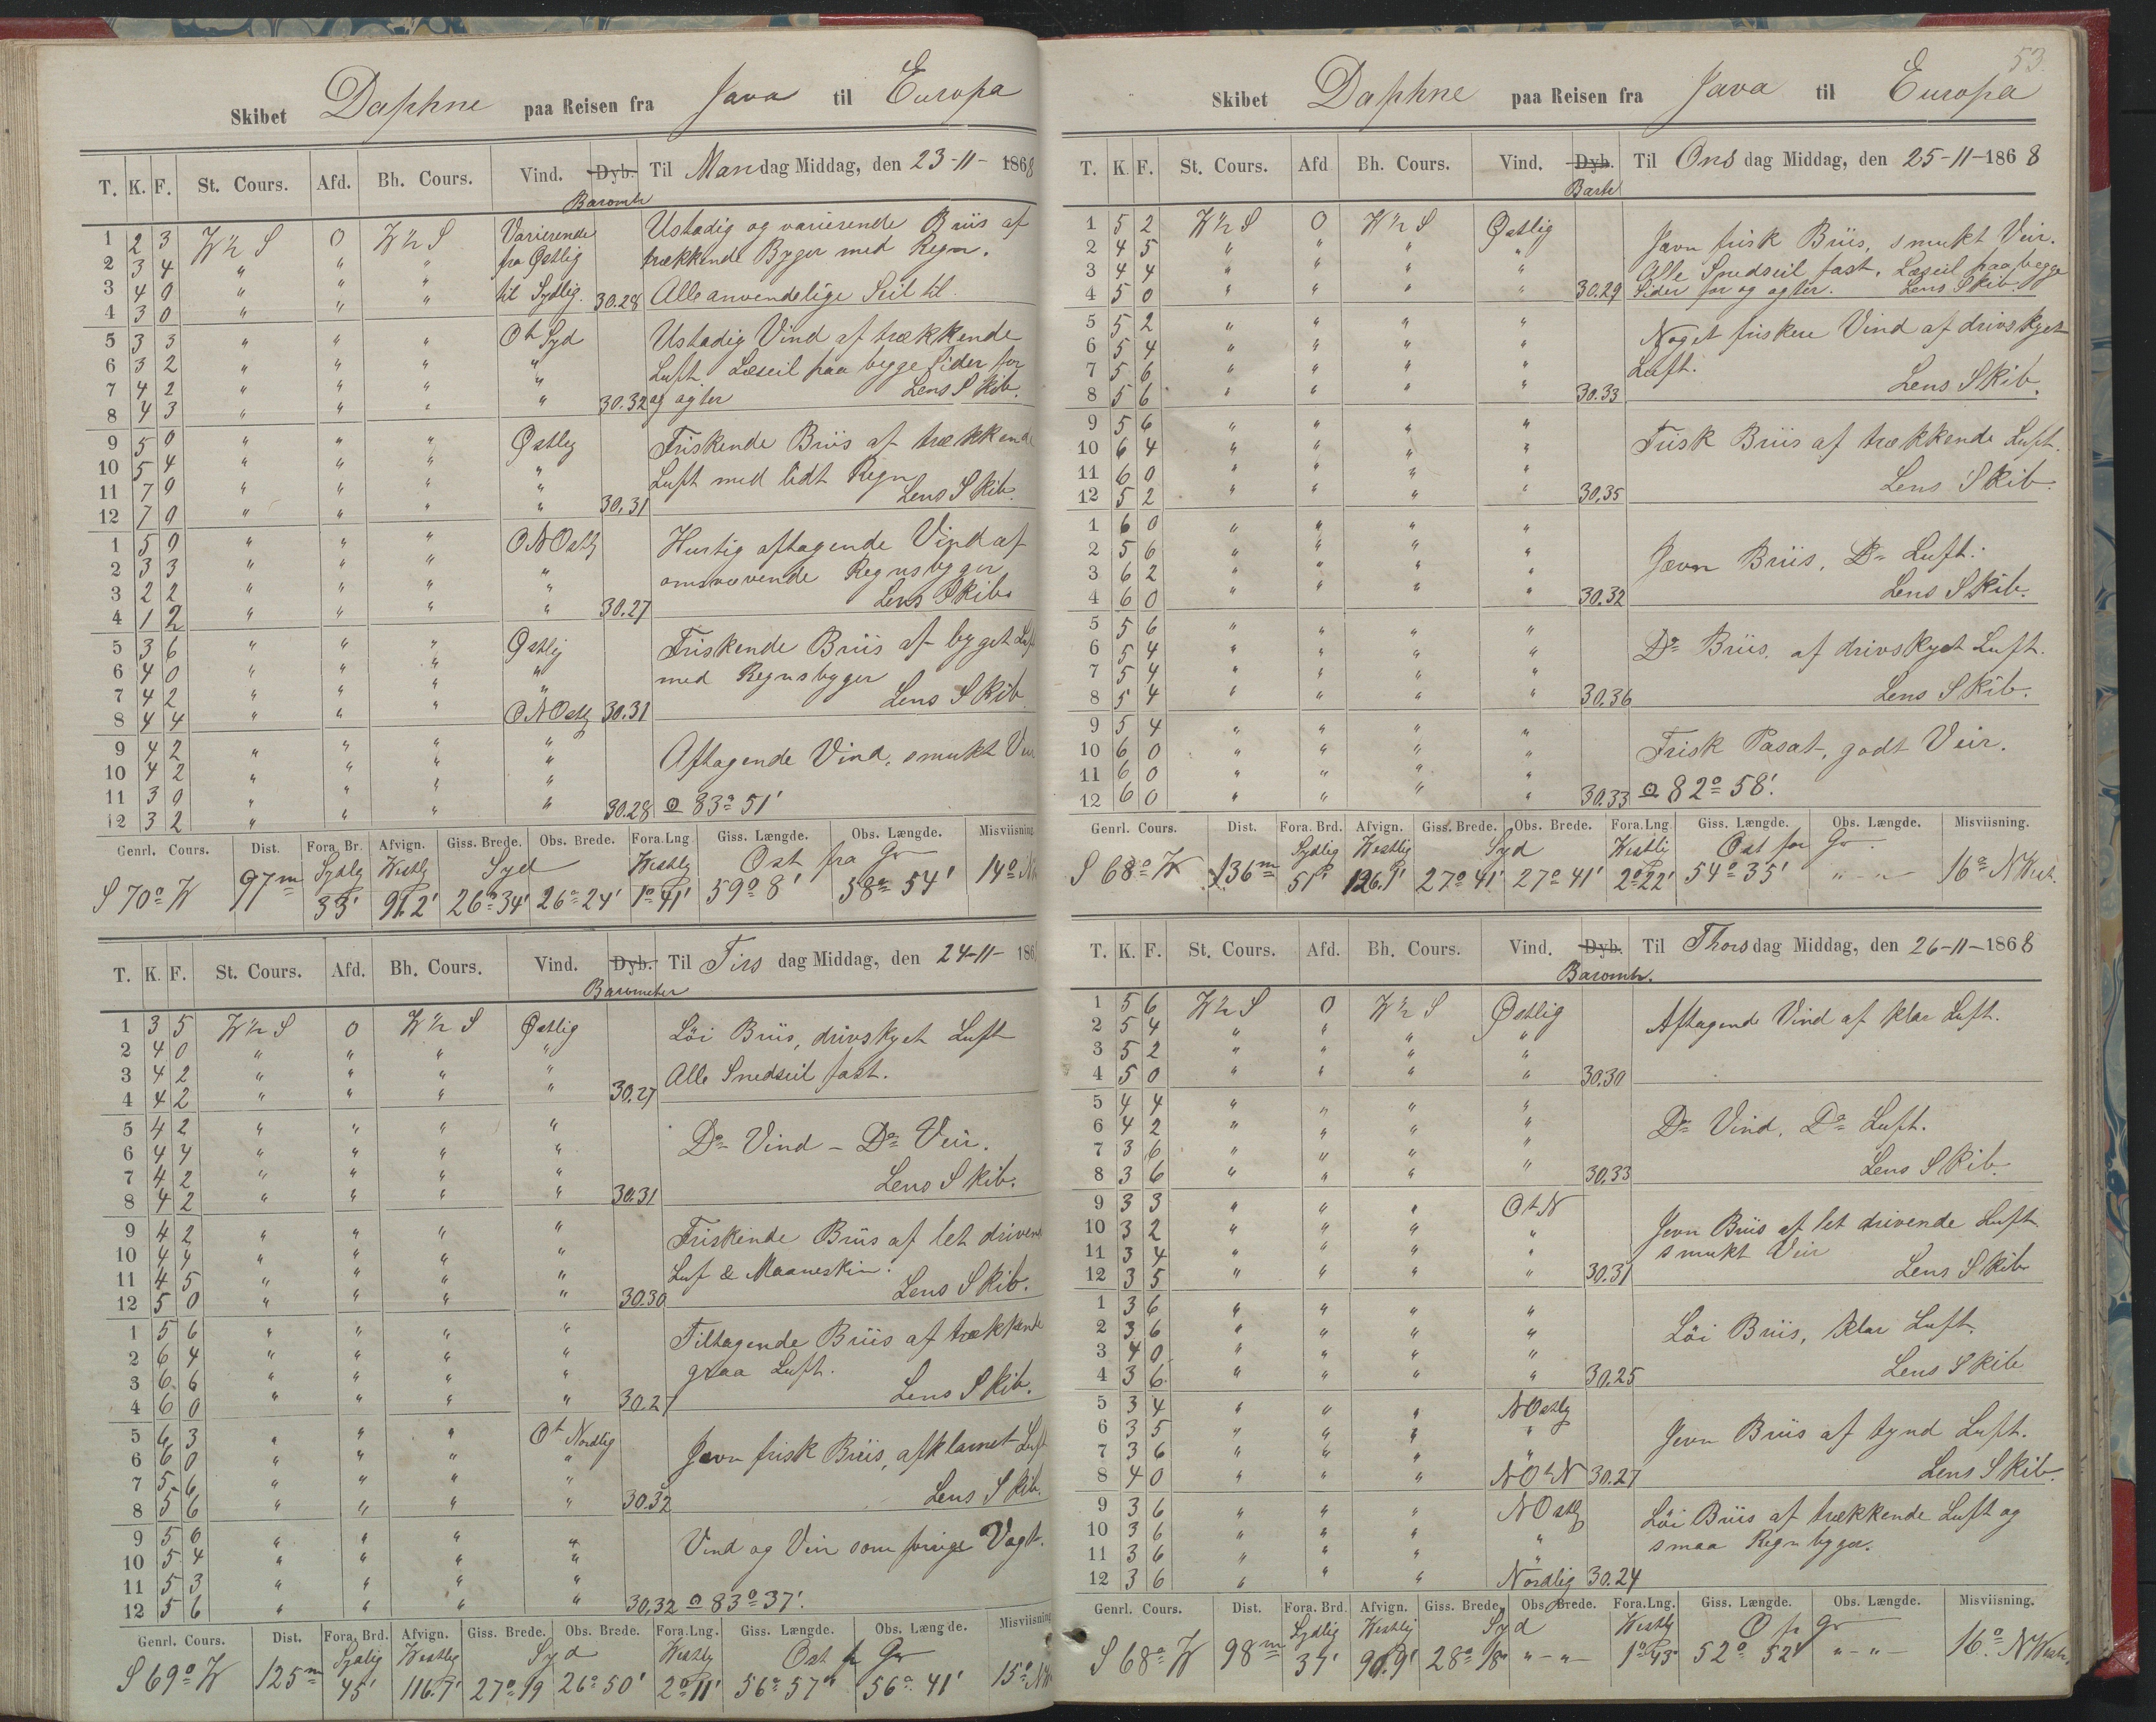 Skibet Daphne paa Reisen fra Java til Europa
T. K. F. St. Cours. Afd. Bh. Cours. Vind. Dyb. Til Mandag Middag, den 23-11-1868
Baromtr
1 2 3 W ½ S 0 W ½ S Varierende Ustadig og varierende Briis af
2 3 4 " " " fra Østlig trækkende Byger med Regn.
3 4 0 " " " til Sydlig. 30.28 Alle anvendelige Seil til.
4 3 0 " " "
5 3 3 " " " Ot Syd Ustadig Vind af trækkende
6 3 2 " " " " Luft Læseil paa begge Sider for
7 4 2 " " " " og agter Lens Skib.
8 4 3 " " " " 30.32
9 5 0 " " " Østlig Friskende Briis af trækkende
10 5 4 " " " " Luft med lidt Regn
11 7 0 " " " " Lens Skib.
12 7 0 " " " " 30.31
1 5 0 " " " ONOstlig Hurtig aftagende Vind af
2 3 3 " " " " omsvævende Regnsbyger
3 2 2 " " " " Lens Skib.
4 1 2 " " " " 30.27
5 3 6 " " " Østlig Friskende Briis af byget Luft
6 4 0 " " " " med Regnsbyger
7 4 2 " " " " Lens Skib
8 4 4 " " " ONOstlig 30.31
9 4 2 " " " " Aftagende Vind, smukt Veir
10 4 2 " " " "
11 3 0 " " " "
12 3 2 " " " " 30.28 83° 51'
Genrl. Cours. Dist. Fora. Br. Afvign. Giss. Brede. Obs. Brede. Fora Lng Giss. Længde. Obs. Længde. Misviisning.
Sydlig Westlig Syd Westlig Ost fra Gr
S 70° W 97m 33' 91.2' 26° 34' 26° 24' 1° 41' 59° 8' 58° 54' 14°
T. K. F. St. Cours. Afd. Bh. Cours. Vind. Dyb. Til Tirsdag Middag, den 24-11-186
Barometer
1 3 5 W ½ S 0 W ½ S Østlig Löi Briis, drivskyet Luft
2 4 0 " " " "
3 4 2 " " " " Alle Snedseil fast.
4 4 2 " " " " 30.27
5 4 2 " " " " Do Vind - Do Veir.
6 4 4 " " " "
7 4 2 " " " " Lens Skib.
8 4 2 " " " " 30.31
9 4 2 " " " " Friskende Briis af let drivende
10 4 4 " " " " Luf & Maaneskin.
11 4 5 " " " " Lens Skib.
12 5 0 " " " " 30.30
1 5 6 " " " " Tiltagende Briis af trækkende
2 6 4 " " " " graa Luft.
3 6 6 " " " " Lens Skib.
4 6 0 " " " " 30.27
5 6 3 " " " Ot Nordlig Jevn frisk Briis, afklarnet Luft
6 6 0 " " " "
7 5 6 " " " " Lens Skib.
8 5 6 " " " " 30.32
9 5 6 " " " " Vind og Veir som forrige Vagt.
10 5 4 " " " "
11 5 3 " " " "
12 5 6 " " " " 30.32 83° 37'.
Genrl. Cours. Dist. Fora. Brd. Afvign. Giss. Brede. Obs. Brede. Fora.Lng. Giss. Længde. Obs. Længde. Misviisning
Sydlig Westlig Syd Westlig Ost fr Gr
S 69° W 125m 45' 116.7' 27° 19 26° 50' 2° 11' 56° 57' 56° 41' 15°
53.
Skibet Daphne paa Reisen fra Java til Europa
T. K. F. St. Cours. Afd Bh. Cours. Vind. Dyb. Til Onsdag Middag, den 25-11-1868
1 5 2 W ½ S 0 W ½ S Østlig Jævn frisk Briis, smukt Veir.
2 4 5 " " " " Alle Snedseil fast. Læseil paa begge
3 4 4 " " " " Sider for og agter. Lens Skib.
4 5 0 " " " " 30.29
5 5 2 " " " " Noget friskere Vind af drivskyet
6 5 4 " " " " Luft.
7 5 6 " " " " Lens Skib.
8 5 6 " " " " 30.33
9 5 6 " " " " Frisk Briis af trækkende Luft.
10 6 4 " " " "
11 6 0 " " " " Lens Skib.
12 5 2 " " " " 30.35
1 6 0 " " " "
2 5 6 " " " " Jævn Briis, Do Luft.
3 6 2 " " " " Lens Skib.
4 6 0 " " " " 30.32
5 5 6 " " " " Do Briis, af drivskyet Luft.
6 5 4 " " " "
7 5 4 " " " " Lens Skib.
8 5 4 " " " " 30.36
9 5 4 " " " " Frisk Pasat, godt Veir.
10 6 0 " " " "
11 6 0 " " " "
12 6 0 " " " " 30.33 82° 58'.
Genrl. Cours. Dist. Fora. Brd. Afvign. Giss. Brede. Obs. Brede. Fora.Lng. Giss. Længde. Obs. Længde. Misviisning.
Sydlig Westlig Syd Westli Ost for Gr
S 68° W 136m 51' 126.1' 27° 41' 27° 41' 2° 22' 54° 35' " - " - 16° NWest.
T. K. F. St. Cours. Afd. Bh. Cours. Vind. Dyb. Til Thorsdag Middag, den 26-11-1868
Baromtr.
1 5 6 W ½ S 0 W ½ S Østlig Aftagende Vind af klar Luft.
2 5 4 " " " "
3 5 2 " " " "
4 5 0 " " " " 30.30
5 4 4 " " " " Do Vind. Do Luft.
6 4 2 " " " "
7 3 6 " " " "
8 3 6 " " " " 30.33 Lens Skib.
9 3 3 " " " OtN Jevn Briis af let drivende Luft
10 3 2 " " " " smukt Veir
11 3 4 " " " " Lens Skib
12 3 5 " " " " 30.31
1 3 6 " " " " Löi Briis, klar Luft.
2 3 6 " " " "
3 4 0 " " " " Lens Skib
4 3 6 " " " " 30.25
5 3 4 " " " NOstlig Jevn Briis af tynd Luft.
6 3 5 " " " "
7 3 6 " " " " Lens Skib.
8 4 0 " " " NOtN 30.27
9 3 6 " " " NOstlig Löi Briis af trækkende Luft og
10 3 6 " " " " smaa Regnbyger.
11 3 6 " " " "
12 3 6 " " " Nordlig 30.24
Genrl. Cours. Dist. Fora. Brd. Afvign. Giss. Brede. Obs. Brede. Fora.Lng. Giss. Længde. Obs. Længde. Misviisning.
Sydlig Westlig Syd Westlig O fr Gr
S 68° W 98m 37' 90.9' 28° 18' " - " - 1° 43' 52° 52' " - " - 16° NWest.